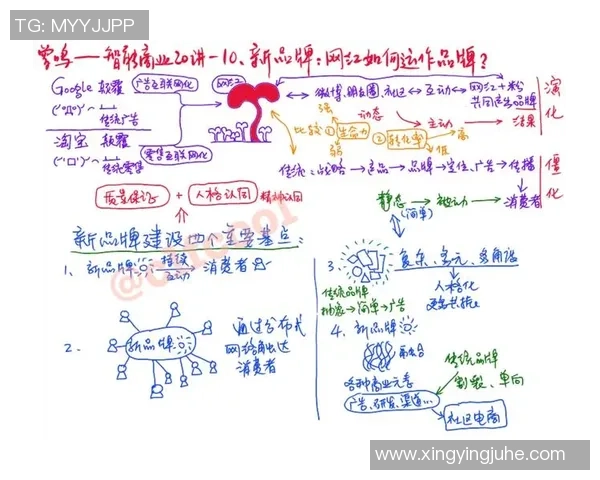 TG: MYYJJPP
曾鸣——智能商业20讲-10、新品牌：网红如何运作品牌？
Google 颠覆 广告互联网化
传统广告
淘宝 颠覆
传统零售
零售互联网化
网红
微博、朋友圈、社区 互动 网红+粉
共同产生品牌
演化
动态 主动 结果
强
比较 ①生命力 ②转化率 高
弱 低
传统：战略→产品→品牌→定位、广告→传播
消费者
僵化
静态→被动
(简单)
质量保证 + 人格认同 精神认同
新品牌建设四个主要基点：
1、新品牌 持续 消费者
互动
2、新品牌
通过分布式
网络触达
消费者
3、复杂、多元、多角度
人格化
传统品牌
抽象→简单→广告
4、新品牌
再融合
各种商业元素
广告、研发、渠道...
传统品牌
割裂、单向
社区电商
www.xingyingjuhe.com